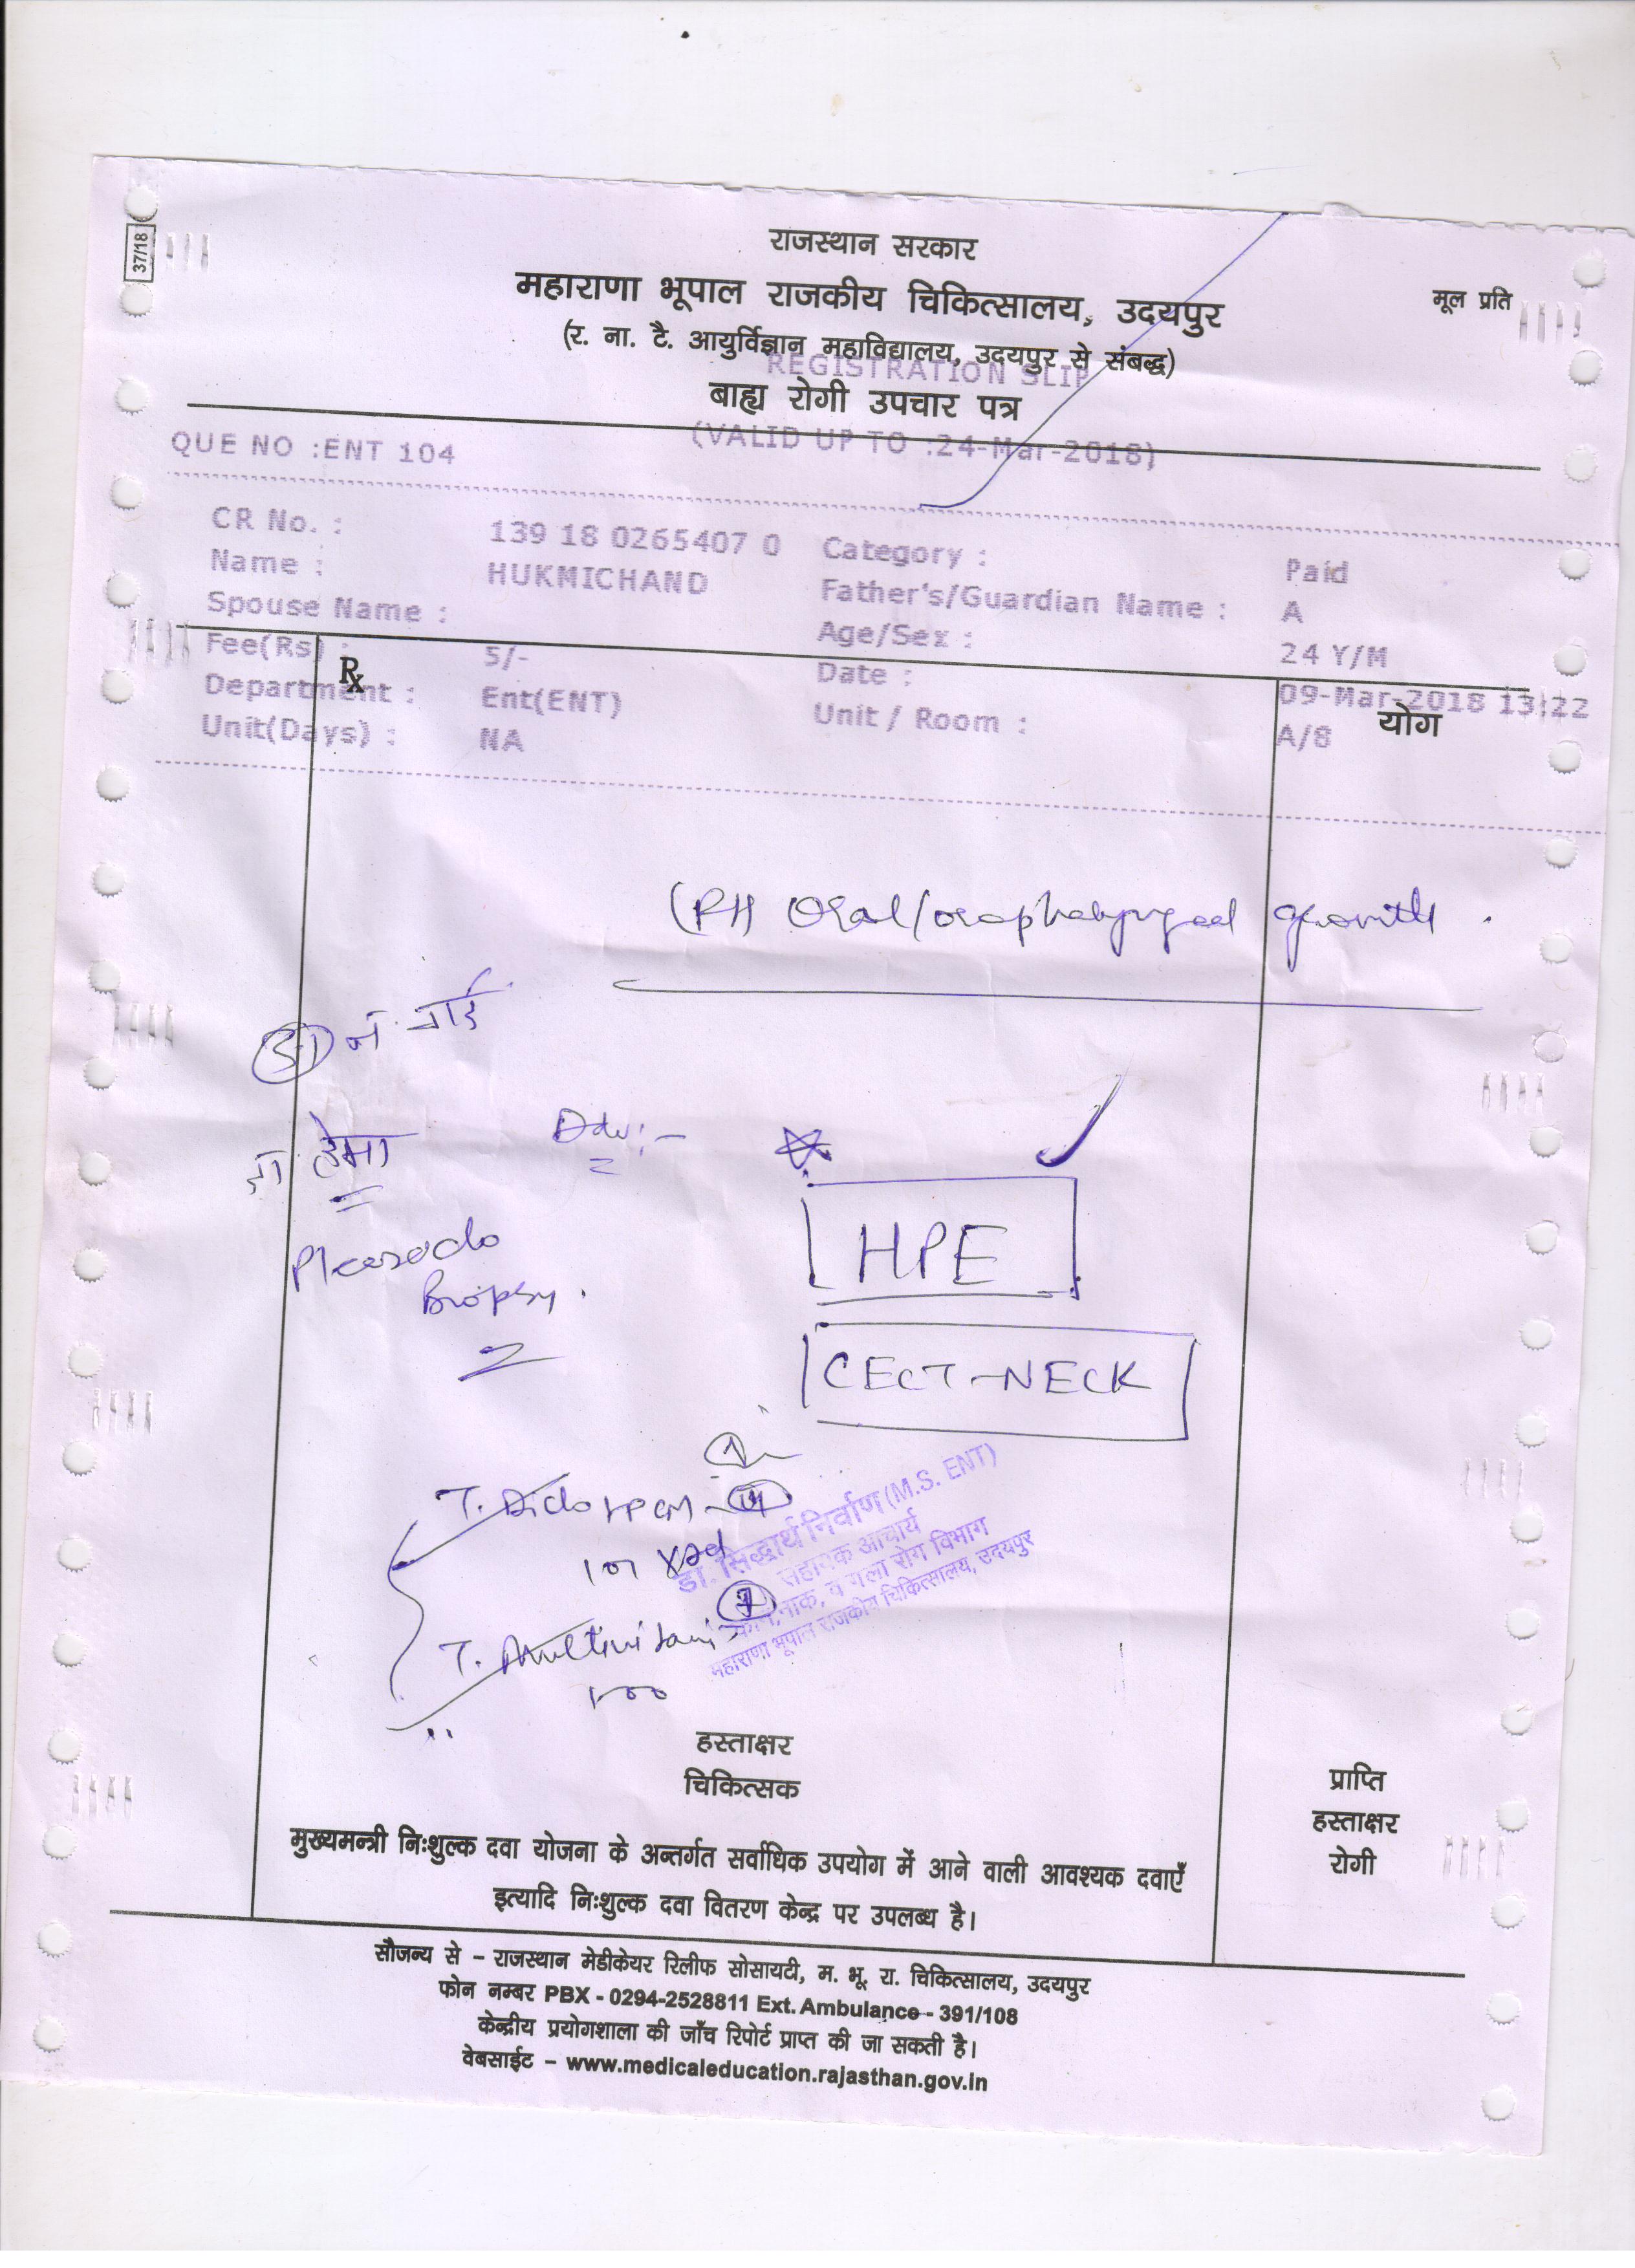 37/18
राजस्थान सरकार
महाराणा भूपाल राजकीय चिकित्सालय, उदयपुर
मूल प्रति
(र. ना. टै. आयुर्विज्ञान महाविद्यालय, उदयपुर से संबद्ध)
REGISTRATION SLIP
बाह्य रोगी उपचार पत्र
(VALID UP TO :24-Mar-2018)
QUE NO :ENT 104
CR No. : 139 18 0265407 0 Category : Paid
Name : HUKMICHAND Father's/Guardian Name : A
Spouse Name : Age/Sex : 24 Y/M
Fee(Rs) : 5/- Date : 09-Mar-2018 13:22
Department : Ent(ENT) Unit / Room : A/8
Unit(Days) : NA
Rx
योग
Oral/oropharyngeal growth.
Adv:-
HPE
Please do
Biopsy.
CECT-NECK
T. Multivitamin
डा. सिद्धार्थ निर्वाण (M.S. ENT)
सहायक आचार्य
कान, नाक, व गला रोग विभाग
महाराणा भूपाल राजकीय चिकित्सालय, उदयपुर
हस्ताक्षर
चिकित्सक
प्राप्ति
हस्ताक्षर
रोगी
मुख्यमन्त्री निःशुल्क दवा योजना के अन्तर्गत सर्वाधिक उपयोग में आने वाली आवश्यक दवाएँ
इत्यादि निःशुल्क दवा वितरण केन्द्र पर उपलब्ध है।
सौजन्य से – राजस्थान मेडीकेयर रिलीफ सोसायटी, म. भू. रा. चिकित्सालय, उदयपुर
फोन नम्बर PBX - 0294-2528811 Ext. Ambulance - 391/108
केन्द्रीय प्रयोगशाला की जाँच रिपोर्ट प्राप्त की जा सकती है।
वेबसाईट – www.medicaleducation.rajasthan.gov.in